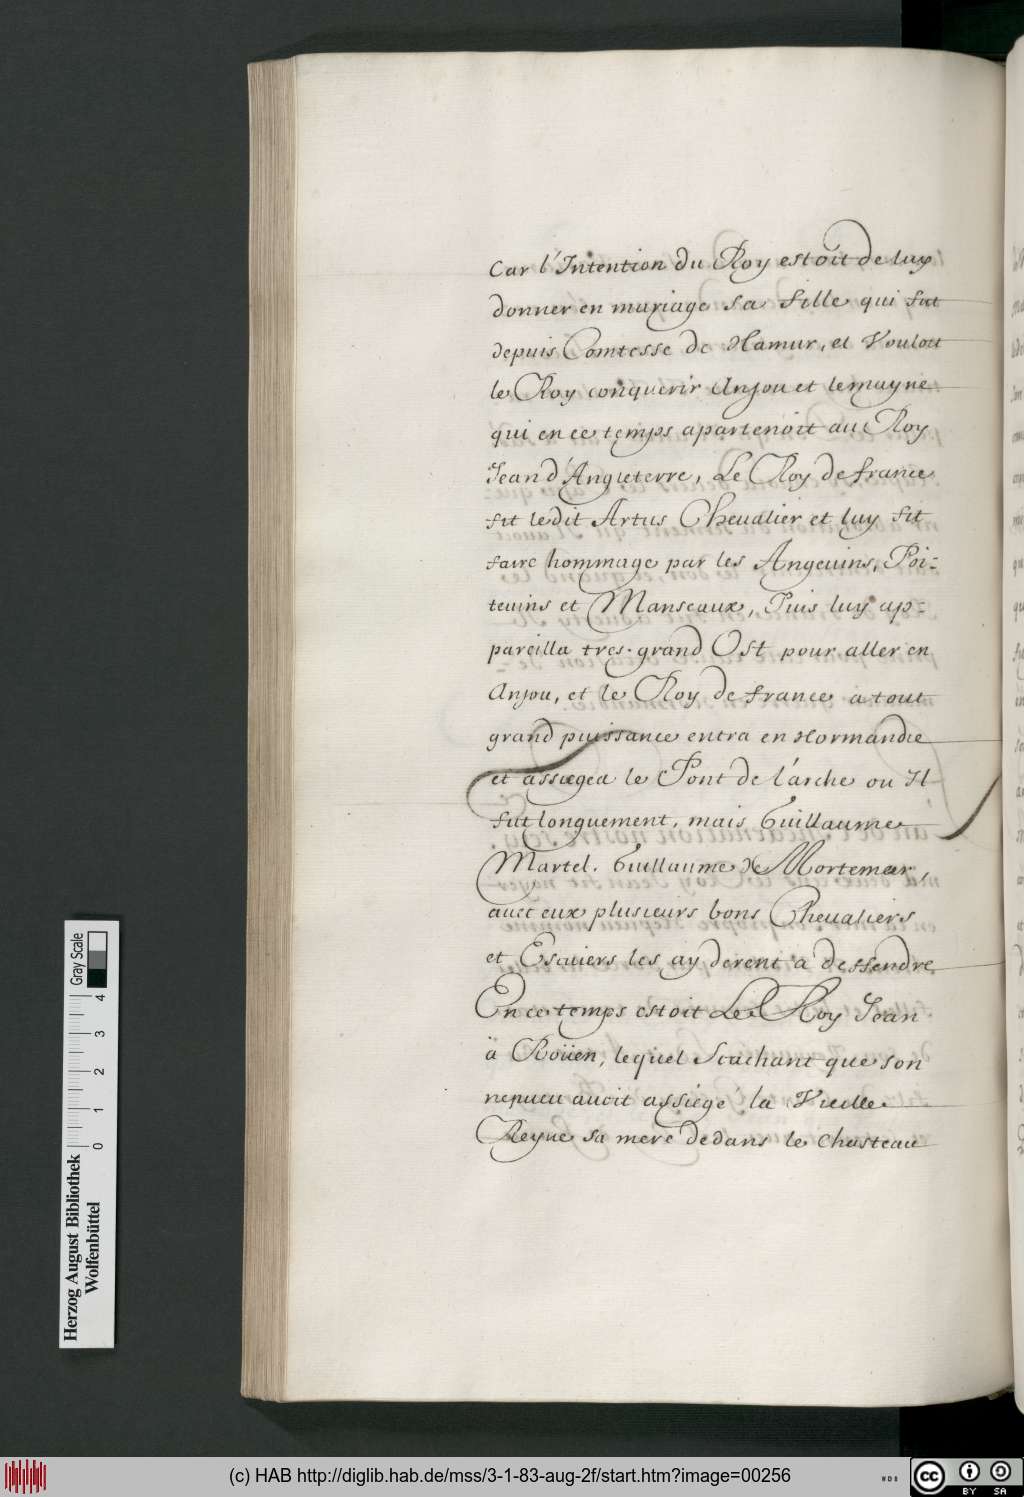 Car l'Intention du Roy estoit de luy
donner en mariage sa fille qui fut
depuis Comtesse de Namur, et Vouloit
le Roy conquerir Anjou et le mayne
qui en ce temps apartenoit au Roy
Jean d'Angleterre, Le Roy de france
fit ledit Artus Chevalier et luy fit
faire hommage par les Angevins, Poi-
tevins et Manseaux, Puis luy ap-
pareilla tres-grand Ost pour aller en
Anjou, et le Roy de france a tout
grand puissance entra en Normandie
et assiegea le Pont de l'arche ou Il
fut longuement, mais Guillaume
Martel, Guillaume de Mortemer,
avec eux plusieurs bons Chevaliers
et Escuiers les ayderent a deffendre
En ce temps estoit Le Roy Jean
à Roüen, lequel Scachant que son
nepueu avoit assiegé la Vieille
Reyne sa mere dedans le chasteau
Gray Scale
4
3
2
1
0
Herzog August Bibliothek
Wolfenbüttel
(c) HAB http://diglib.hab.de/mss/3-1-83-aug-2f/start.htm?image=00256
WDB
cc BY SA